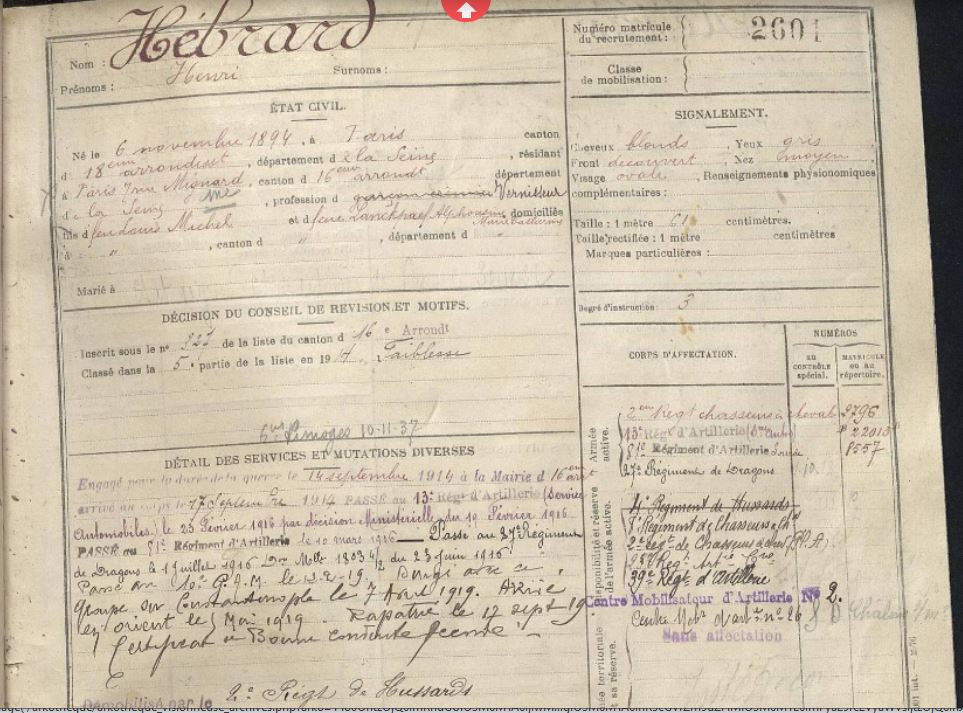 Nom : Hébrard
Prénoms : Henri Surnoms :
Numéro matricule du recrutement : 2601
Classe de mobilisation :
ÉTAT CIVIL.
Né le 6 novembre 1894, à Paris canton
d' 18eme arrondisst, département d e la Seine, résidant
à Paris 7 rue Mignard, canton d 16eme arrondt département
d e la Seine, profession d Vernisseur
fils d feu Louis Michel et d feue domiciliés
d' " , canton d " , département d "
Marié à
SIGNALEMENT.
Cheveux blonds, Yeux gris
Front découvert, Nez moyen
Visage ovale, Renseignements physionomiques
complémentaires :
Taille : 1 mètre 61 centimètres.
Taille rectifiée : 1 mètre centimètres
Marques particulières :
Degré d'instruction : 3
DÉCISION DU CONSEIL DE REVISION ET MOTIFS.
Inscrit sous le n° de la liste du canton d 16e Arrondt
Classé dans la 5e partie de la liste en 1914. Faiblesse
Limoges 10-11-37
DÉTAIL DES SERVICES ET MUTATIONS DIVERSES
Engagé pour la durée de la guerre le 14 septembre 1914 à la Mairie d 16eme arrt
arrivé au corps le 17 Septembre 1914 PASSÉ au 13e Régt d'Artillerie (Service
Automobiles) le 23 Février 1916 par décision Ministérielle du 19 Février 1916
PASSÉ au 81e Régiment d'Artillerie le 10 mars 1916 — Passé au 27e Régiment
de Dragons le 1 juillet 1916 du 23 juin 1916
Passé au 10e P.A.M. le Dirigé avec ce
groupe sur Constantinople le 7 Avril 1919. Arrivé
en orient le 5 Mai 1919 - Rapatrié le 12 sept 19
Certificat de Bonne conduite
Démobilisé par le 2e Régt de Hussards
CORPS D'AFFECTATION.
NUMÉROS
AU CONTRÔLE spécial.
MATRICULE ou au répertoire.
Armée active.
2eme Régt chasseurs à cheval 2796
13e Régt d'Artillerie 22013
81e Régiment d'Artillerie 8557
27e Régiment de Dragons
Disponibilité et réserve de l'armée active.
4e Régiment de Hussards
39e Régt d'Artillerie
Centre Mobilisateur d'Artillerie N° 2.
Centre Mobr d'art. n° 26
Sans affectation